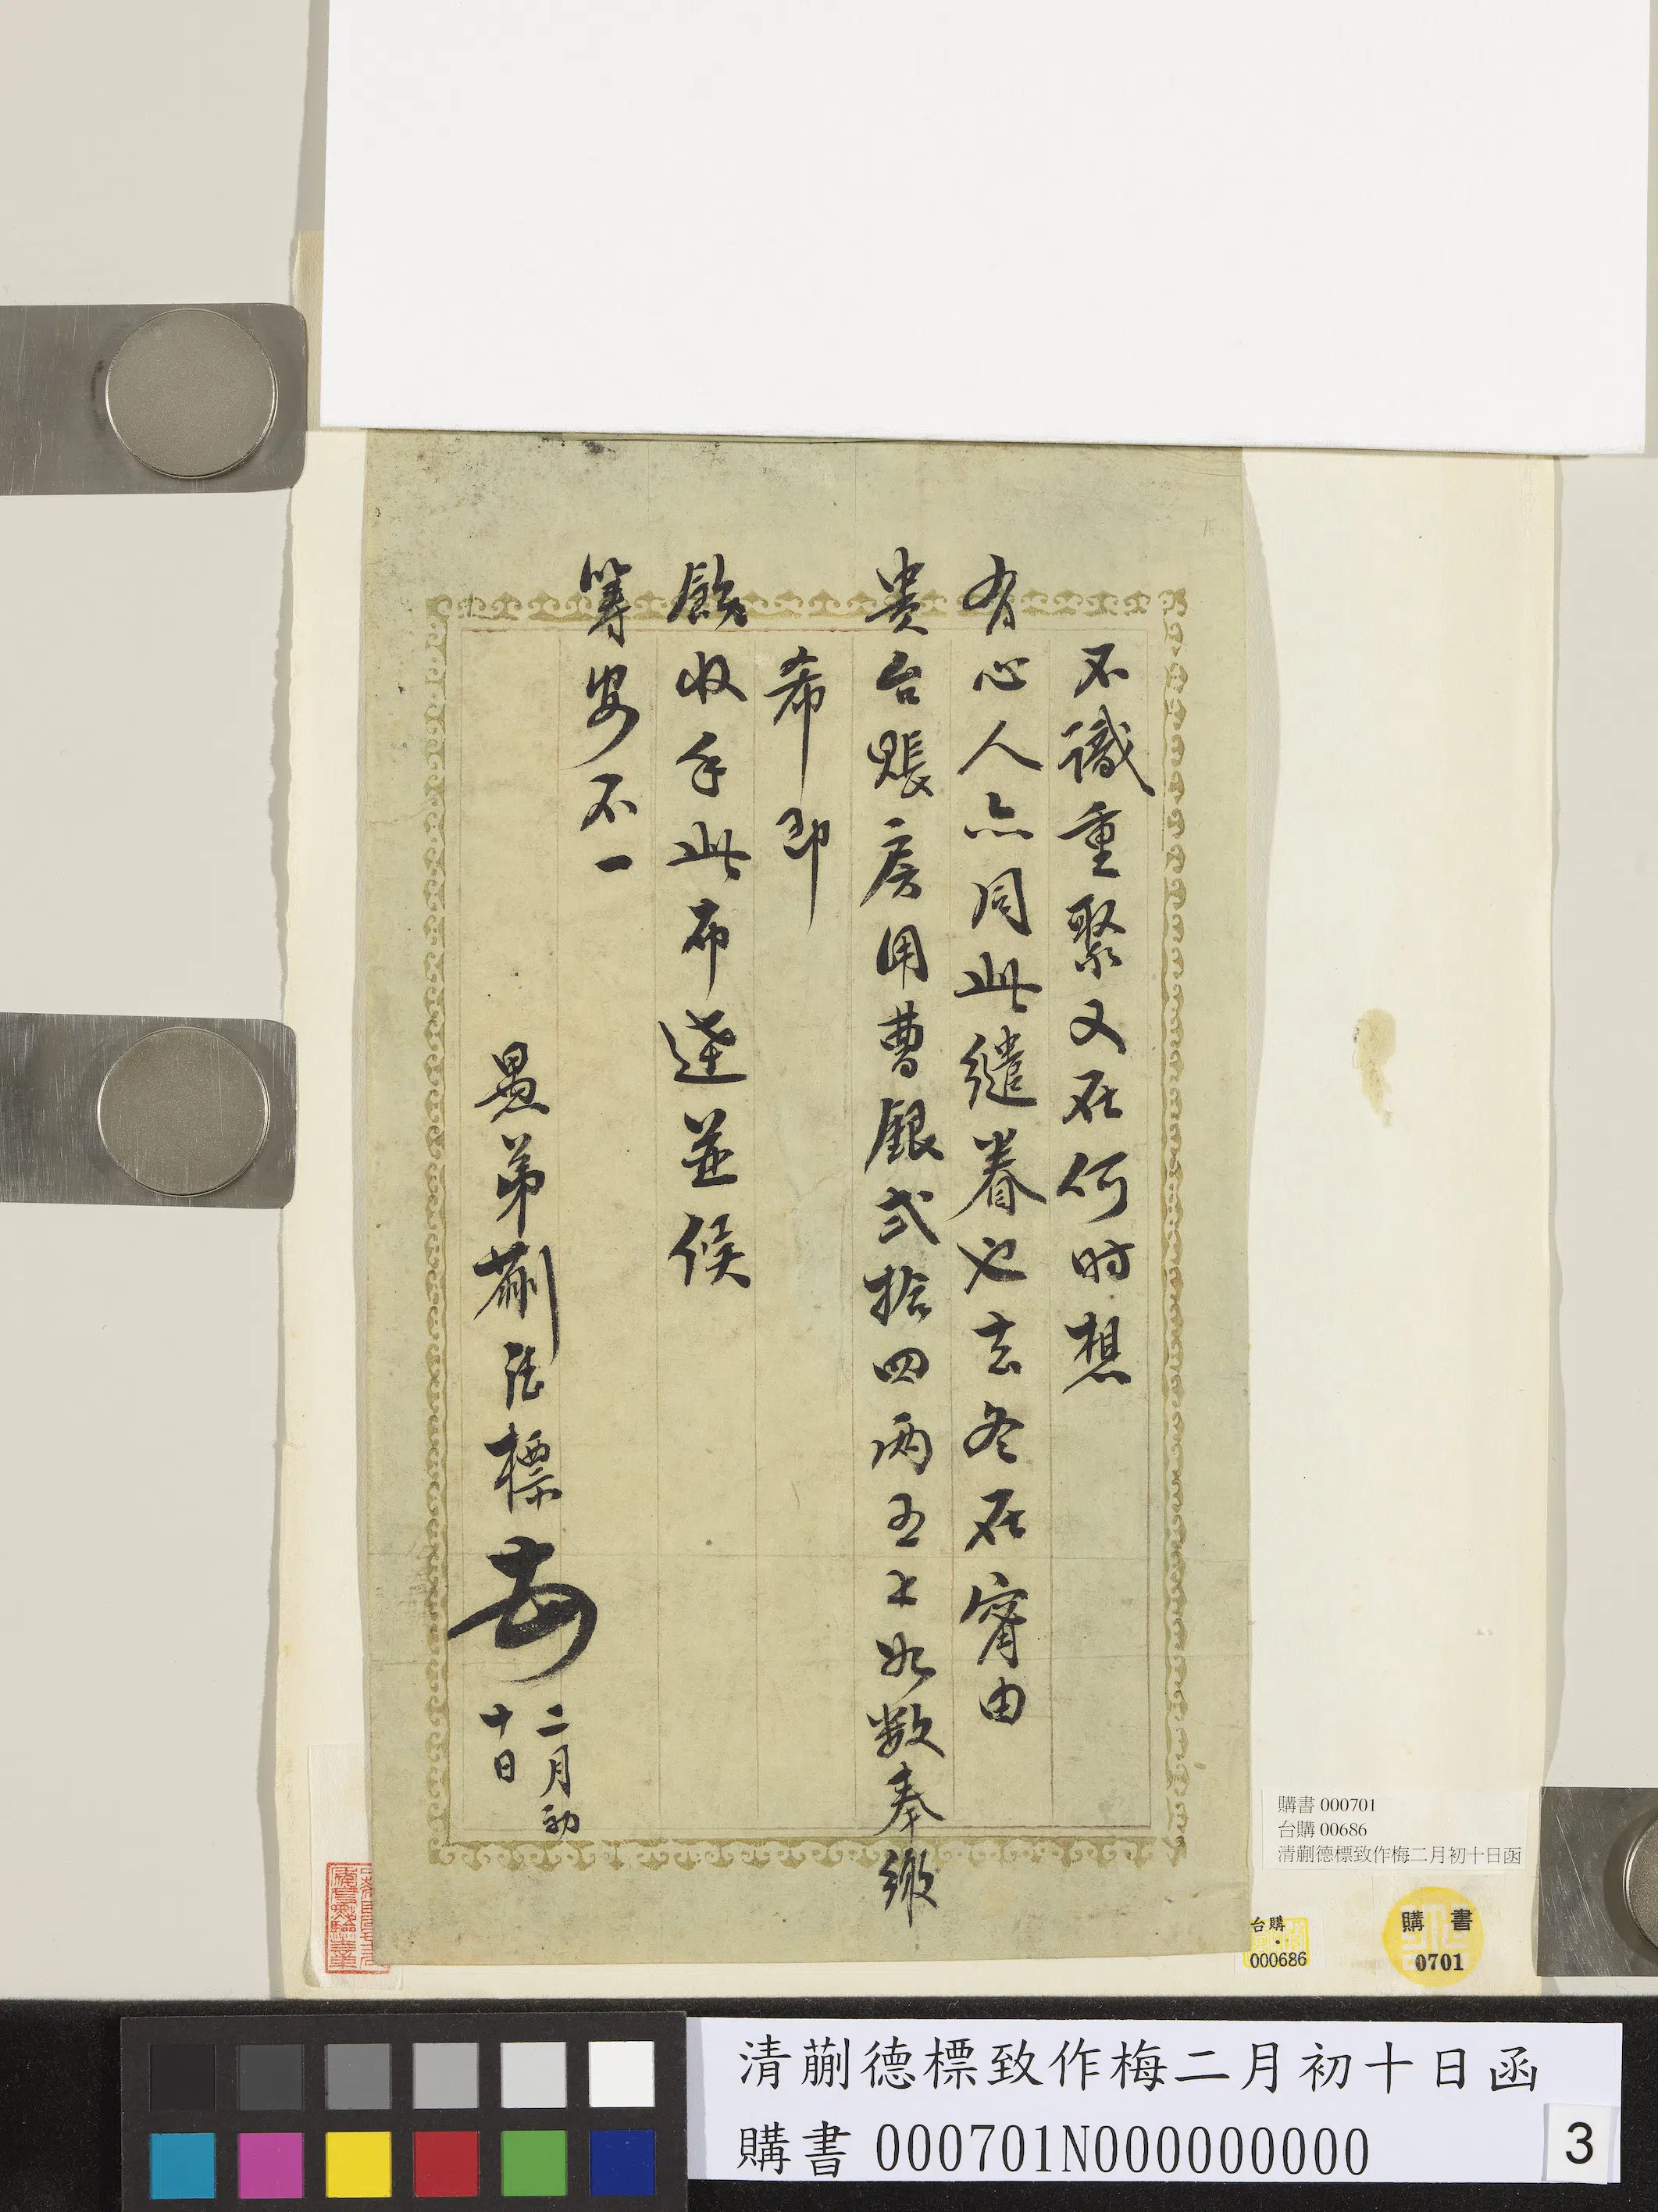 不識重聚又在何时想
有心人亦同此繾眷也去冬在甯由
貴台賬房用曹銀弍拾四两五如数奉繳
希即
飭收手此布達並候
籌安不一
愚弟蒯德標
二月初
十日
購書 000701
台購 00686
清蒯德標致作梅二月初十日函
台購
000686
購書
0701
清蒯德標致作梅二月初十日函
購書 000701N000000000
3